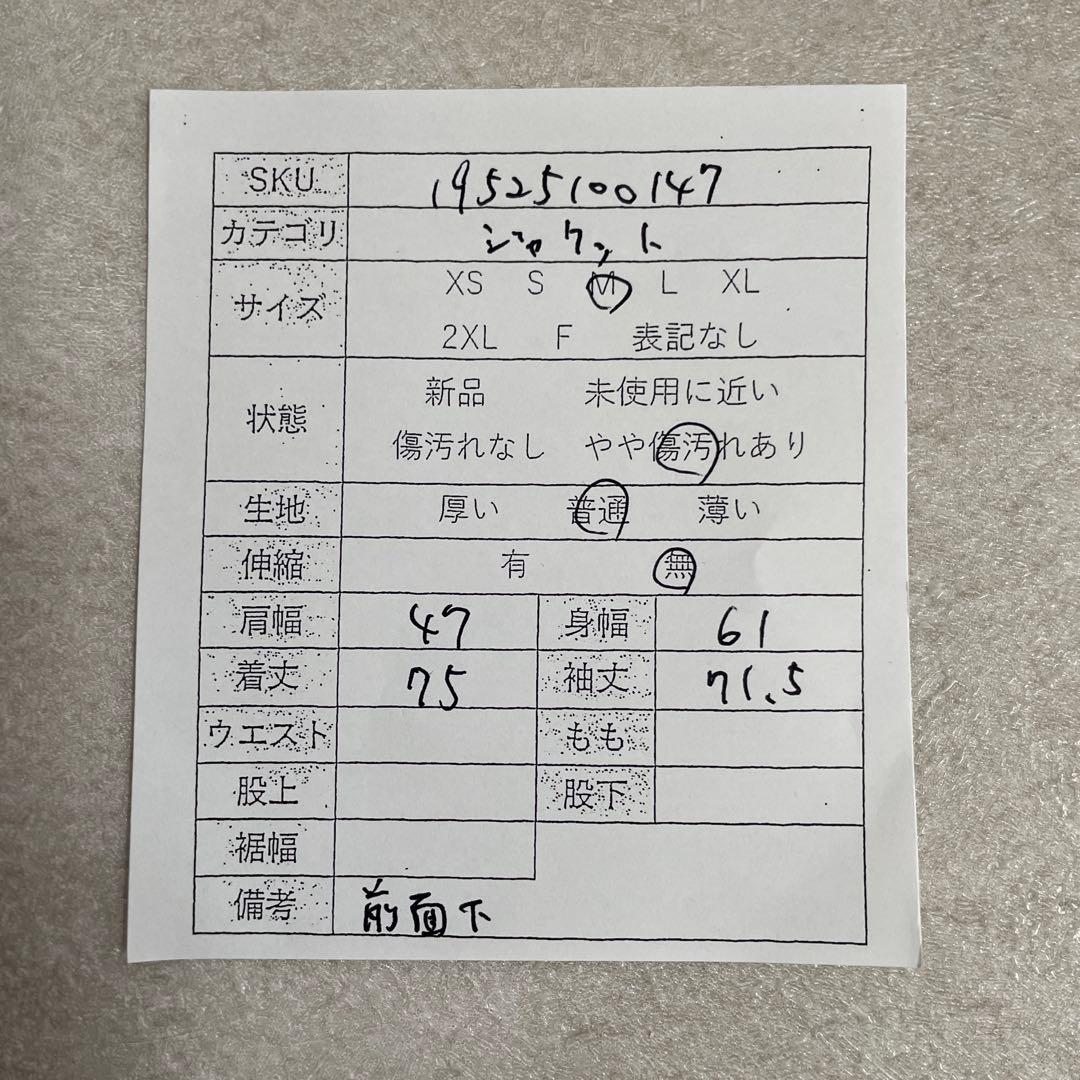 SKU 19525100147
カテゴリ ジャケット
サイズ XS S M L XL
2XL F 表記なし
状態 新品 未使用に近い
傷汚れなし やや傷汚れあり
生地 厚い 普通 薄い
伸縮 有 無
肩幅 47 身幅 61
着丈 75 袖丈 71.5
ウエスト もも
股上 股下
裾幅
備考 前面下